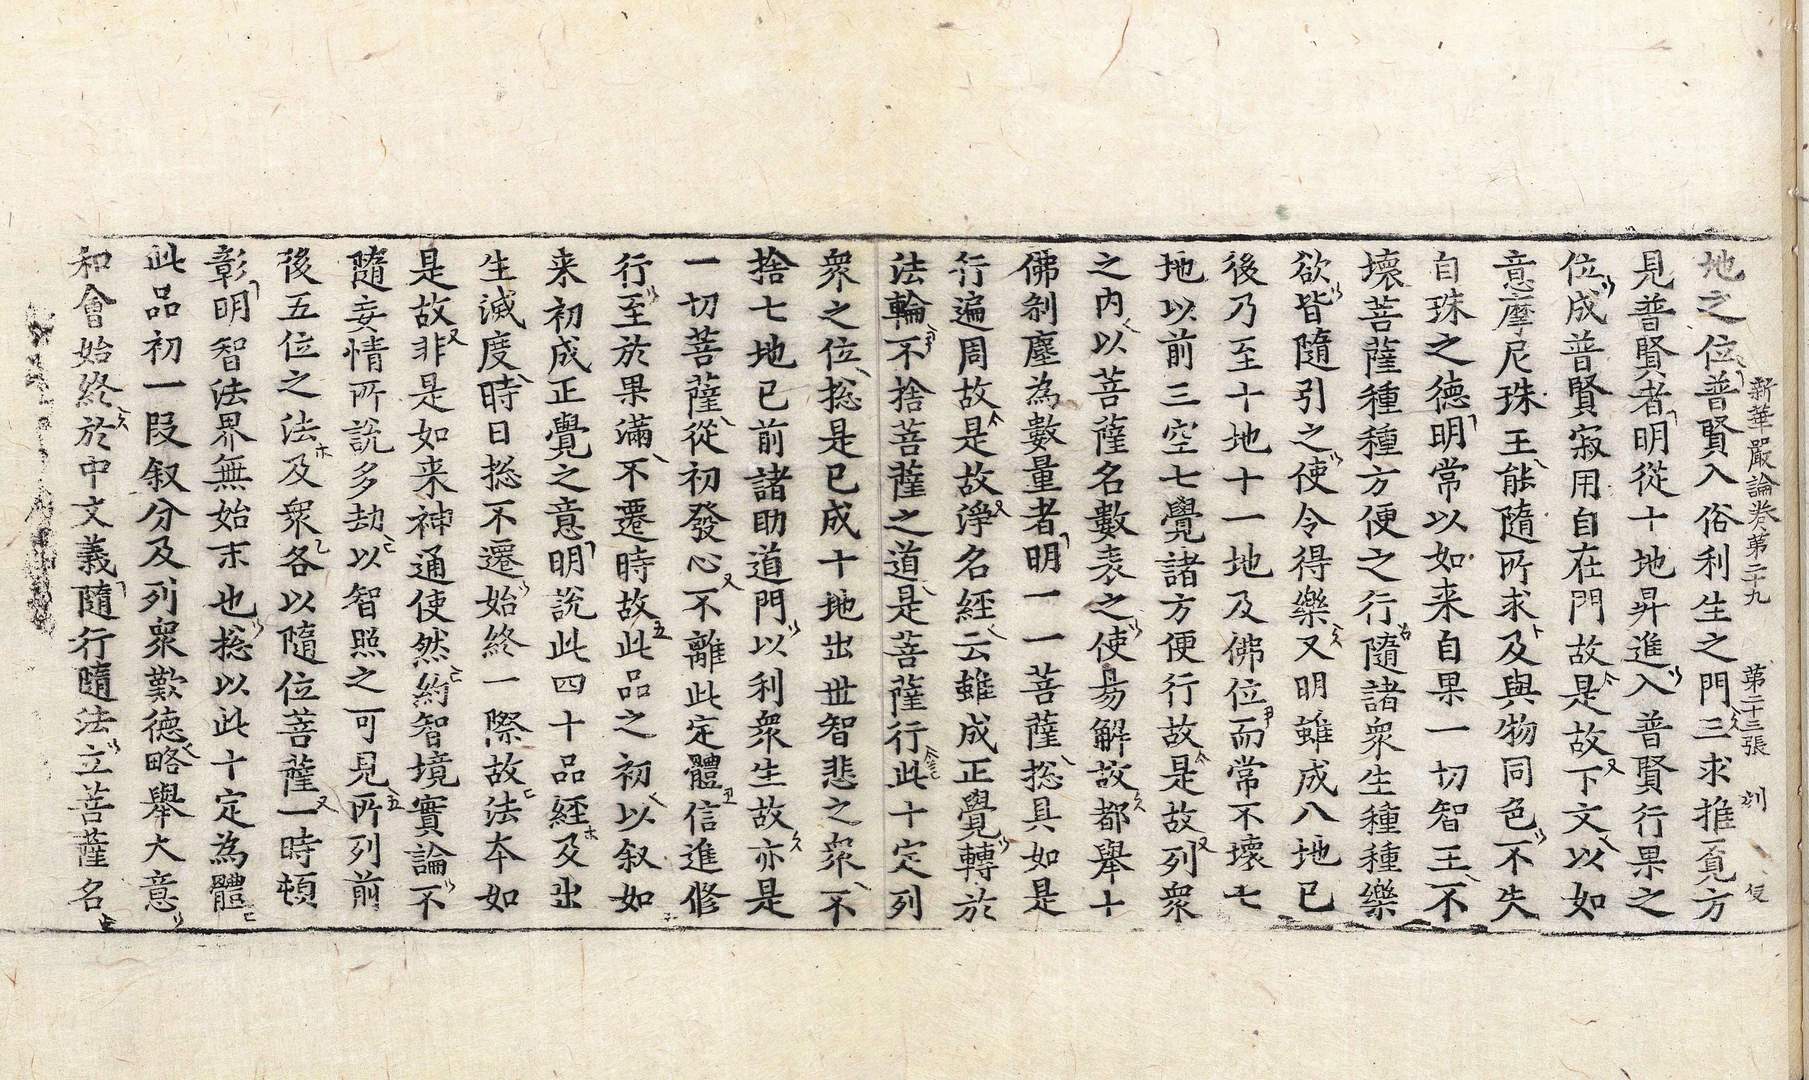 新華嚴論卷第二十九 第二十三張
地之位普賢入俗利生之門三求推覓方
見普賢者明從十地昇進入普賢行果之
位成普賢寂用自在門故是故下文以如
意摩尼珠王能隨所求及與物同色不失
自珠之德明常以如来自果一切智王不
壞菩薩種種方便之行隨諸衆生種種樂
欲皆隨引之使令得樂又明雖成八地已
後乃至十地十一地及佛位而常不壞七
地以前三空七覺諸方便行故是故列衆
之内以菩薩名數表之使昜解故都舉十
佛刹塵為數量者明一一菩薩揔具如是
行遍周故是故淨名經云雖成正覺轉於
法輪不捨菩薩之道是菩薩行此十定列
衆之位揔是已成十地出世智悲之衆不
捨七地已前諸助道門以利衆生故亦是
一切菩薩從初發心不離此定體信進修
行至於果滿不遷時故此品之初以叙如
来初成正覺之意明說此四十品經及出
生滅度時日揔不遷始終一際故法夲如
是故非是如来神通使然約智境實論不
隨妄情所說多劫以智照之可見所列前
後五位之法及衆各以隨位菩薩一時頓
彰明智法界無始末也揔以此十定為體
此品初一段叙分及列衆歎德略舉大意
和會始終於中文義隨行隨法立菩薩名